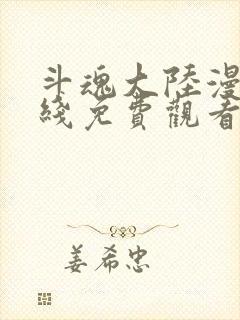 斗魂大陸漫
綫免費觀看
姜希忠